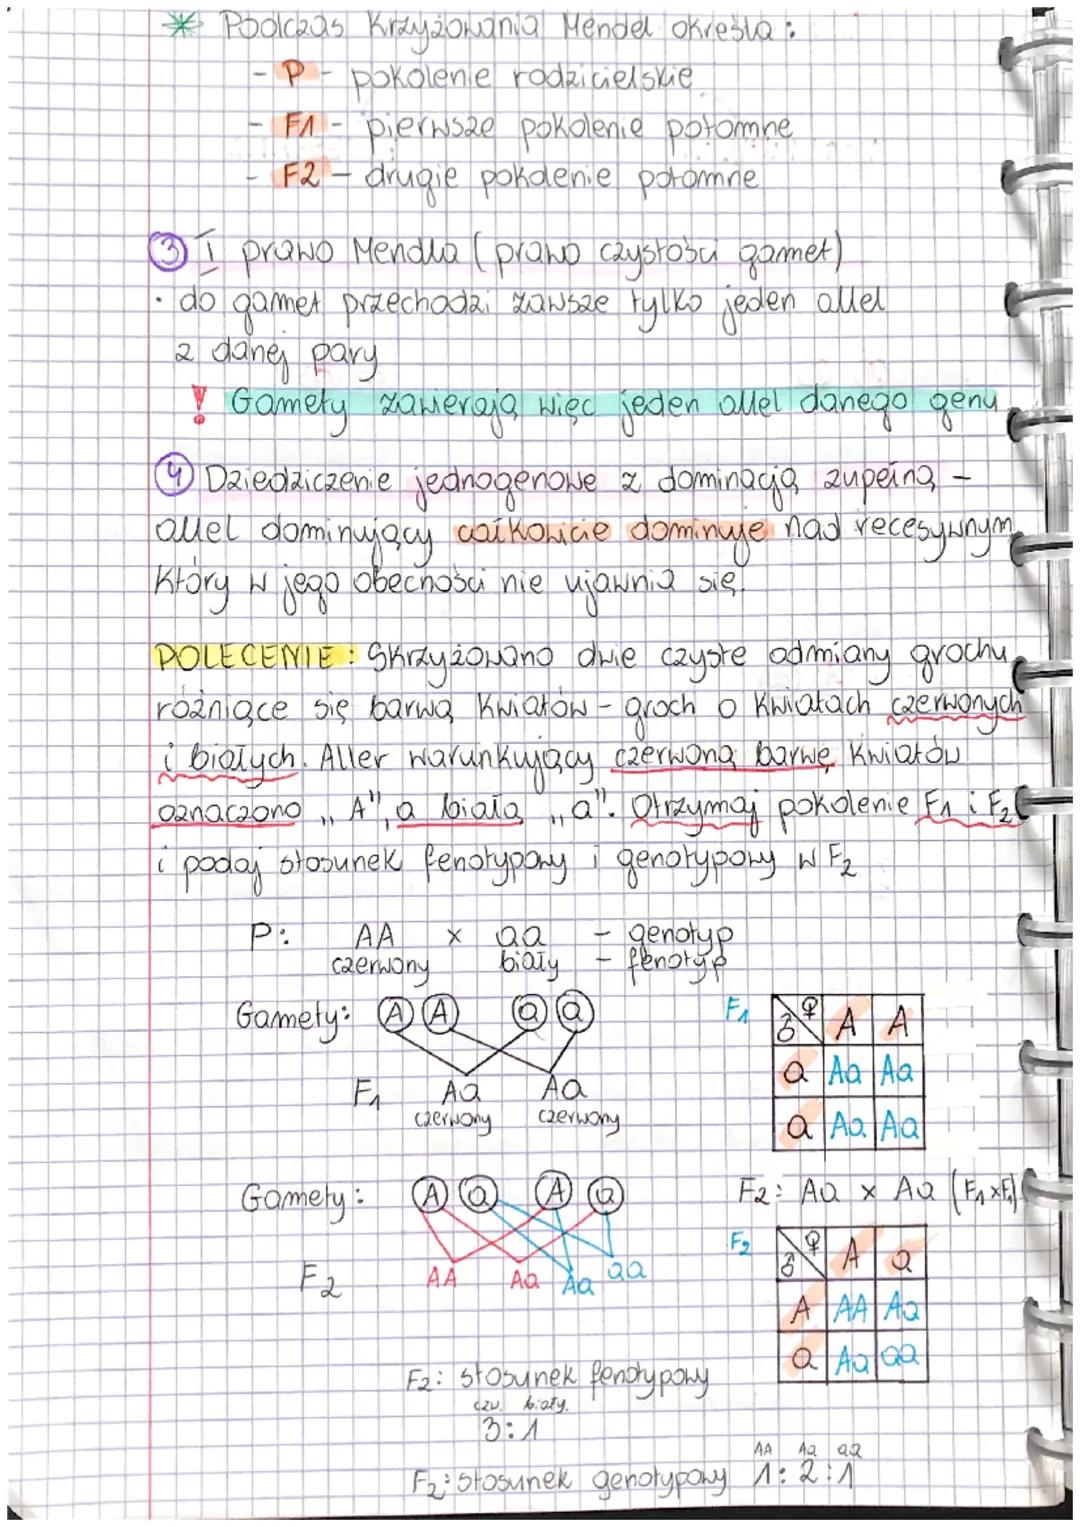 * Podczas Krzyżowania Mendel określa :
- P - pokolenie rodzicielskie
- F1 - pierwsze pokolenie potomne
- F2 - drugie pokolenie potomne
3 I prawo Mendla ( prawo czystości gamet)
• do gamet przechodzi zawsze tylko jeden allel
z danej pary
! Gamety zawierają więc jeden allel danego genu
4 Dziedziczenie jednogenowe z dominacją zupełną -
allel dominujący całkowicie dominuje nad recesywnym,
Który w jego obecności nie ujawnia się.
POLECENIE : Skrzyżowano dwie czyste odmiany grochu,
różniące się barwą kwiatów - groch o kwiatach czerwonych
i białych. Aller warunkujący czerwoną barwę kwiatów
oznaczono „A", a białą „a". Otrzymaj pokolenie F1 i F2
i podaj stosunek fenotypowy i genotypowy w F2
P: AA x aa - genotyp
czerwony biały - fenotyp
Gamety: A A a a
F1 Aa Aa
czerwony czerwony
F1 ♂ ♀ A A
a Aa Aa
a Aa Aa
Gamety: A a A a
F2 AA Aa Aa aa
F2: Aa x Aa (F1 x F1)
F2 ♂ ♀ A a
A AA Aa
a Aa aa
F2: stosunek fenotypowy
czw. biały.
3:1
AA Aa aa
F2: stosunek genotypowy 1:2:1